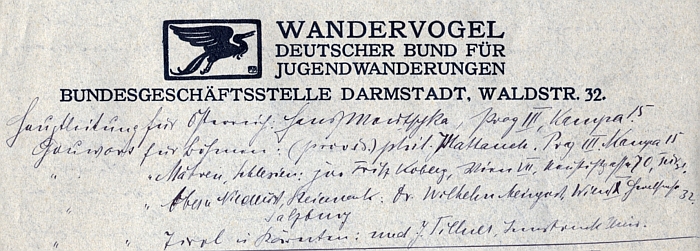 WANDERVOGEL
DEUTSCHER BUND FÜR
JUGENDWANDERUNGEN
BUNDESGESCHÄFTSSTELLE DARMSTADT, WALDSTR. 32.
Hauptleitung für Österreich: Hans Moutschka, Prag III, Kampa 15
Gauwart für Böhmen: (provis.) phil. Mattausch, Prag III. Kampa 15
" " Mähren, Schlesien: jur Fritz Koberg, Wien VII,
" " Ober u. Niederöst, Steiermark: Dr. Wilhelm Wien 32.
Salzburg
" " Tirol u. Kärnten: med. J. Tillner, Innsbruck